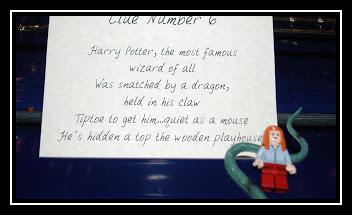 Clue Number 6
Harry Potter, the most famous
wizard of all
Was snatched by a dragon,
held in his claw
Tiptoe to get him...quiet as a mouse
He's hidden a top the wooden playhouse